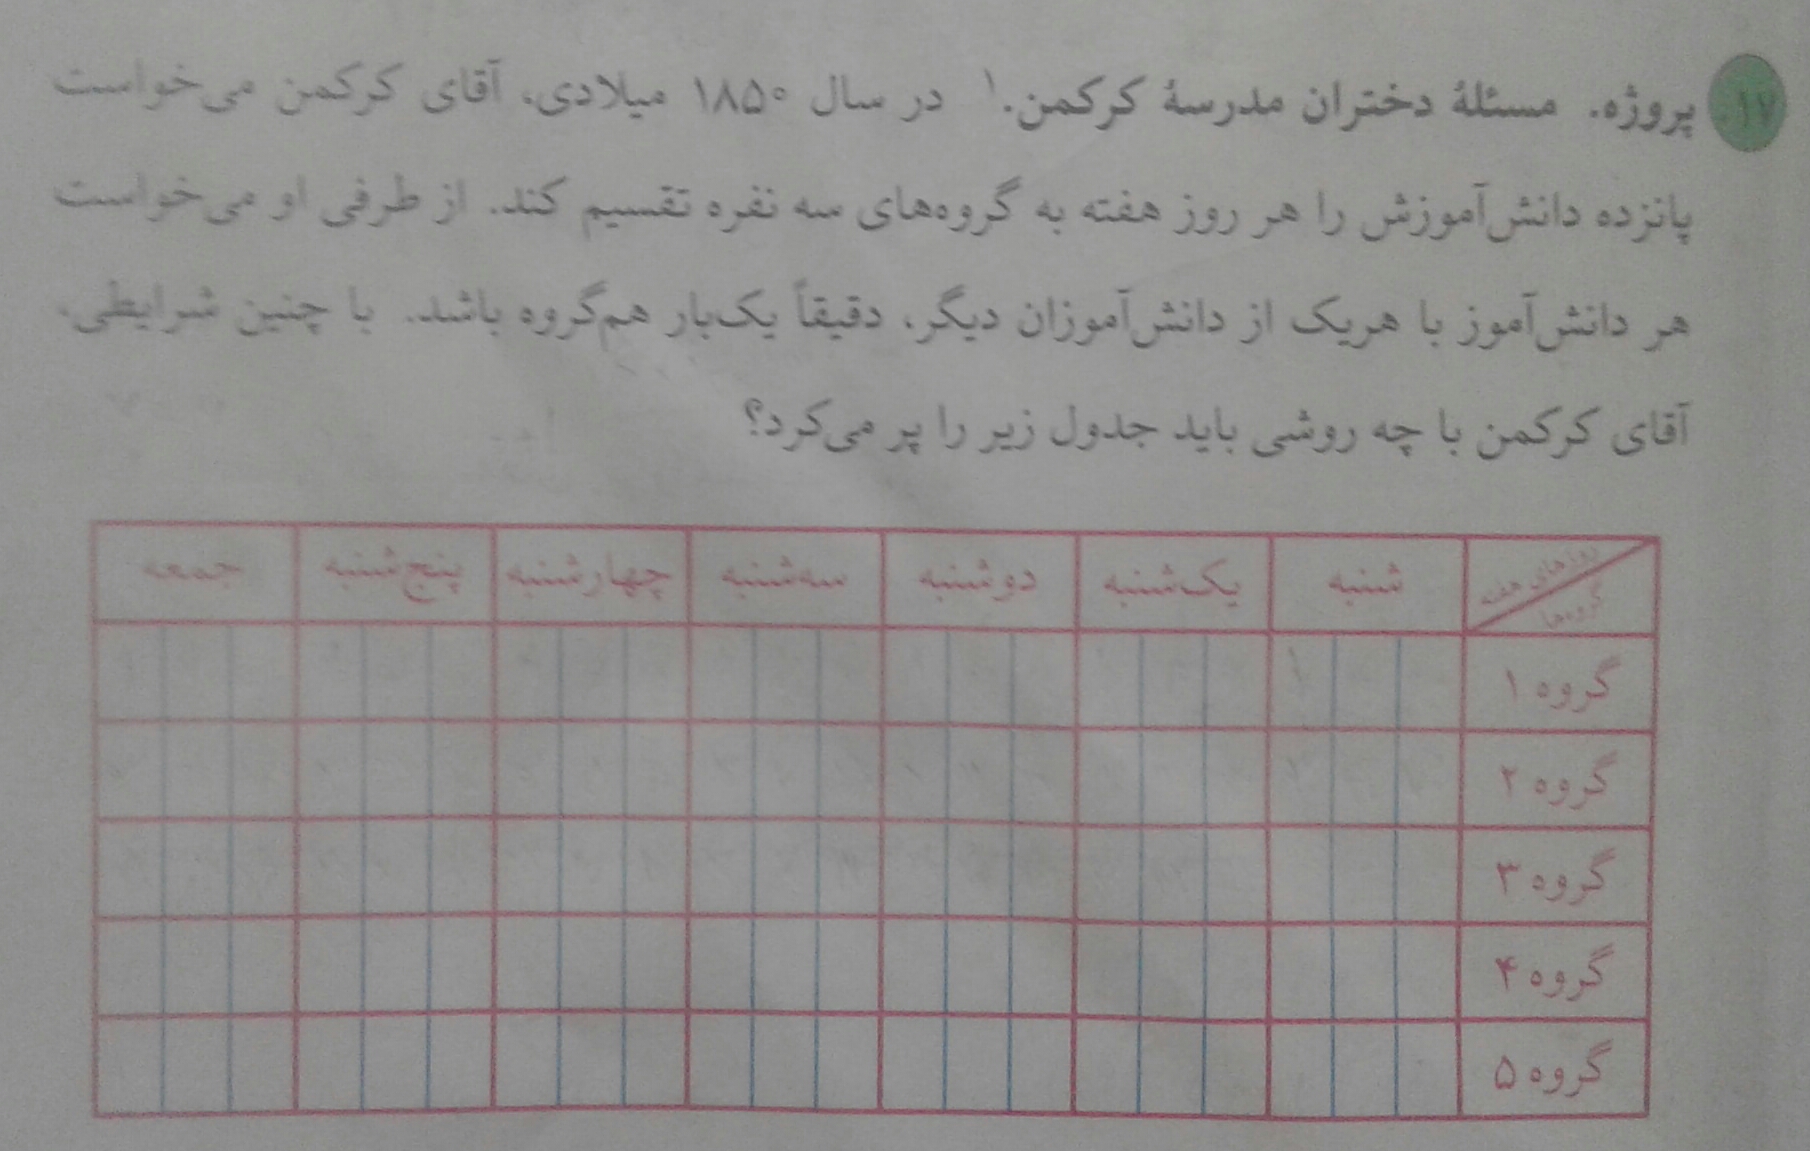 ۱۷. پروژه. مسئلهٔ دختران مدرسهٔ کرکمن.۱ در سال ۱۸۵۰ میلادی، آقای کرکمن می‌خواست
پانزده دانش‌آموزش را هر روز هفته به گروه‌های سه نفره تقسیم کند. از طرفی او می‌خواست
هر دانش‌آموز با هریک از دانش‌آموزان دیگر، دقیقاً یک‌بار هم‌گروه باشد. با چنین شرایطی،
آقای کرکمن با چه روشی باید جدول زیر را پر می‌کرد؟
روزهای هفته
گروه‌ها
شنبه یک‌شنبه دوشنبه سه‌شنبه چهارشنبه پنج‌شنبه جمعه
گروه ۱ ۱
گروه ۲
گروه ۳
گروه ۴
گروه ۵